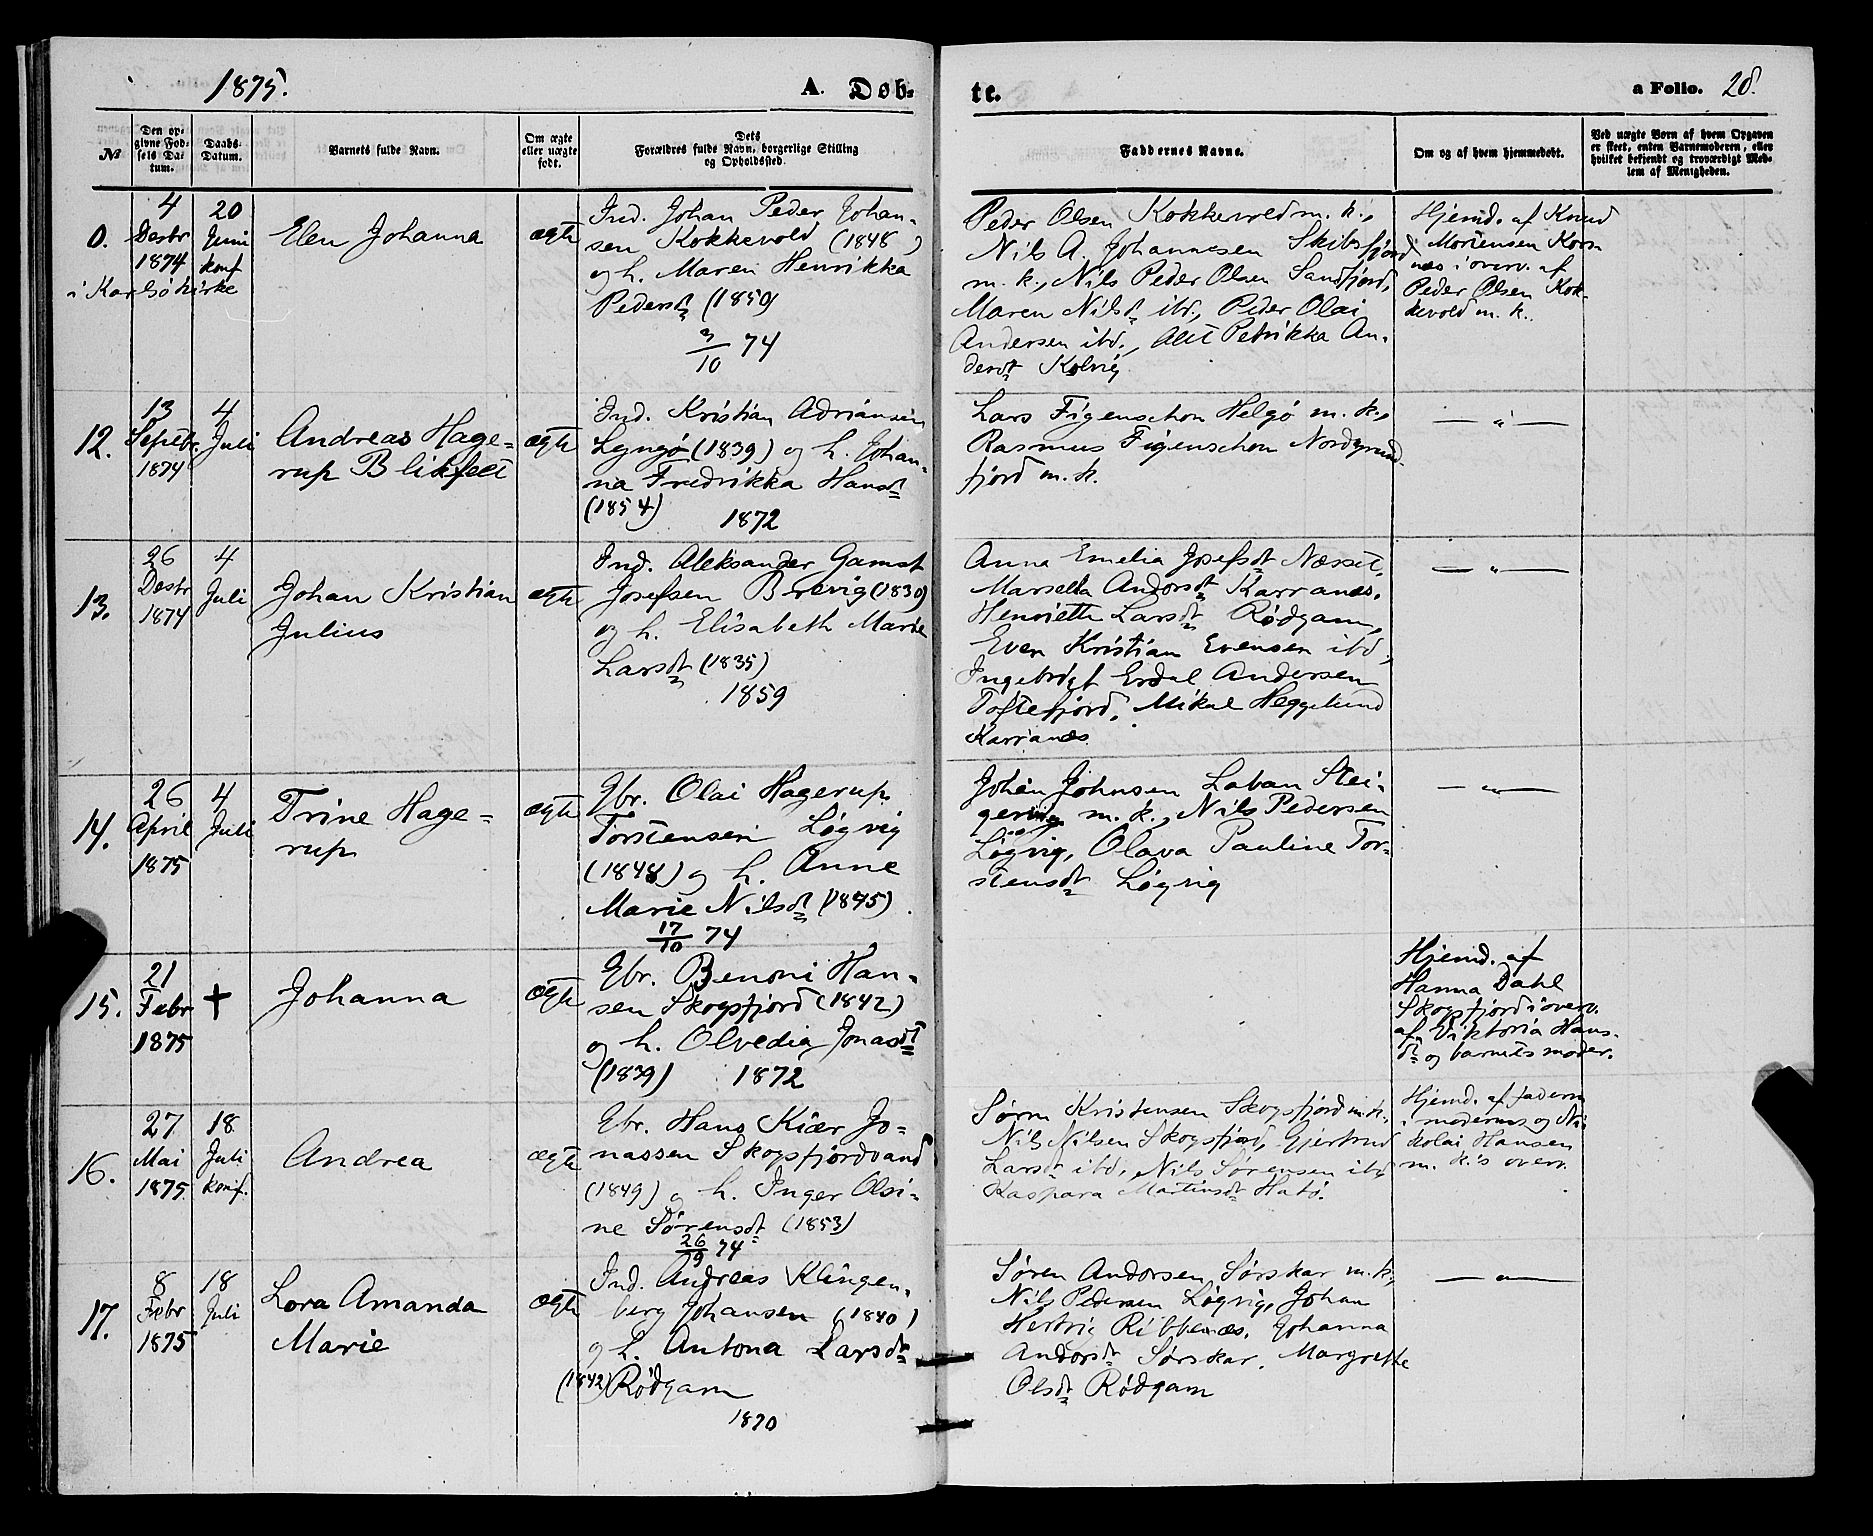 1875. A. Døb- te. a Folio. 28.
No
Den op-
givne Fød-
sels Da-
tum.
Daabs-
Datum.
Barnets fulde Navn.
Om ægte
eller uægte
født.
Dets
Forældres fulde Navn, borgerlige Stilling
og Opholdssted.
Faddernes Navne.
Om og af hvem hjemmedøbt.
Ved uægte Børn af hvem Opgaven
er skeet, enten Barnemoderen, eller
hvilket bekjendt og troværdigt Med-
lem af Menigheden.
0.
i Karlsö kirke
4
Desbr
1874
20
Juni
konf
Elen Johanna
ægte
Ind. Johan Peder Johan-
sen Kokkevold (1848)
og h. Maren Henrikka
Pedersdt (1850)
3/10 74
Peder Olsen Kokkevold m. k.,
Nils A. Johannesen Skibsfjord
m. k., Nils Peder Olsen Sandfjord,
Maren Nilsdt ibd., Peder Olai
Andersen ibd., Alet Petrikka An-
dersdt Kolvig
Hjemd. af Knud
Mortensen Kors
næs i overv. af
Peder Olsen Kok-
kevold m. k.
12.
13
Septbr
1874
4
Juli
Andreas Hage-
rup Blikfelt
ægte
Ind. Kristian Adriansen
Lyngø (1839) og h. Johan-
na Fredrikka Hansdt
(1854)
1872
Lars Figenschou Helgø m. k.,
Rasmus Figenschou Nordgrund-
fjord m. k.
— " —
13.
26
Desbr
1874
4
Juli
Johan Kristian
Julius
ægte
Ind. Aleksander Gamst
Josefsen Brevig (1830)
og h. Elisabeth Marie
Larsdt (1835)
1859
Anna Emelia Josefsdt Næsset,
Marselia Andorsdt Karranæs.
Henriette Larsdt Rødgam,
Even Kristian Evensen ibd,
Ingebrigt Erdal Andersen
Toftefjord, Mikal Heggelund
Karranæs
— " —
14.
26
April
1875
4
Juli
Trine Hage-
rup
ægte
Gbr. Olai Hagerup
Torstensen Løgvig
(1848) og h. Anne
Marie Nilsdt (1845)
17/10 74
Johan Johnsen Laban Stei-
gervig m. k., Nils Pedersen
Løgvig, Olava Pauline Tor-
stensdt Løgvig
— " —
15.
21
Febr
1875
†
Johanna
ægte
Gbr. Benoni Han-
sen Skogsfjord (1842)
og h. Olvedia Jonasdt
(1839) 1872
Hjemd. af
Hanna Dahl
Skogsfjord i overv.
af Viktoria Hans-
dt og barnets moder.
16.
27
Mai
1875
18
Juli
konf.
Andrea
ægte
Gbr. Hans Kiær Jo-
nassen Skogsfjordvand
(1849) og h. Inger Olsi-
ne Sørensdt (1853)
26/9 74
Sørn Kristensen Skogsfjord m. k.
Nils Nilsen Skogsfjord, Gjertrud
Larsdt ibd, Nils Sørensen ibd
Kaspara Martinsdt Hatø.
Hjemd. af faderen
i moderens og Ni-
kolai Hansen
m. k.'s overv.
17.
8
Febr
1875
18
Juli
Lora Amanda
Marie
ægte
Ind. Andreas Klingen-
berg Johansen (1840)
og h. Antona Larsdt
(1842) Rødgam
1870
Søren Andorsen Sørskar m. k,
Nils Pedersen Løgvig, Johan
Hertvig Ribbenæs, Johanna
Andorsdt Sørskar, Margrethe
Olsdt Rødgam
— " —